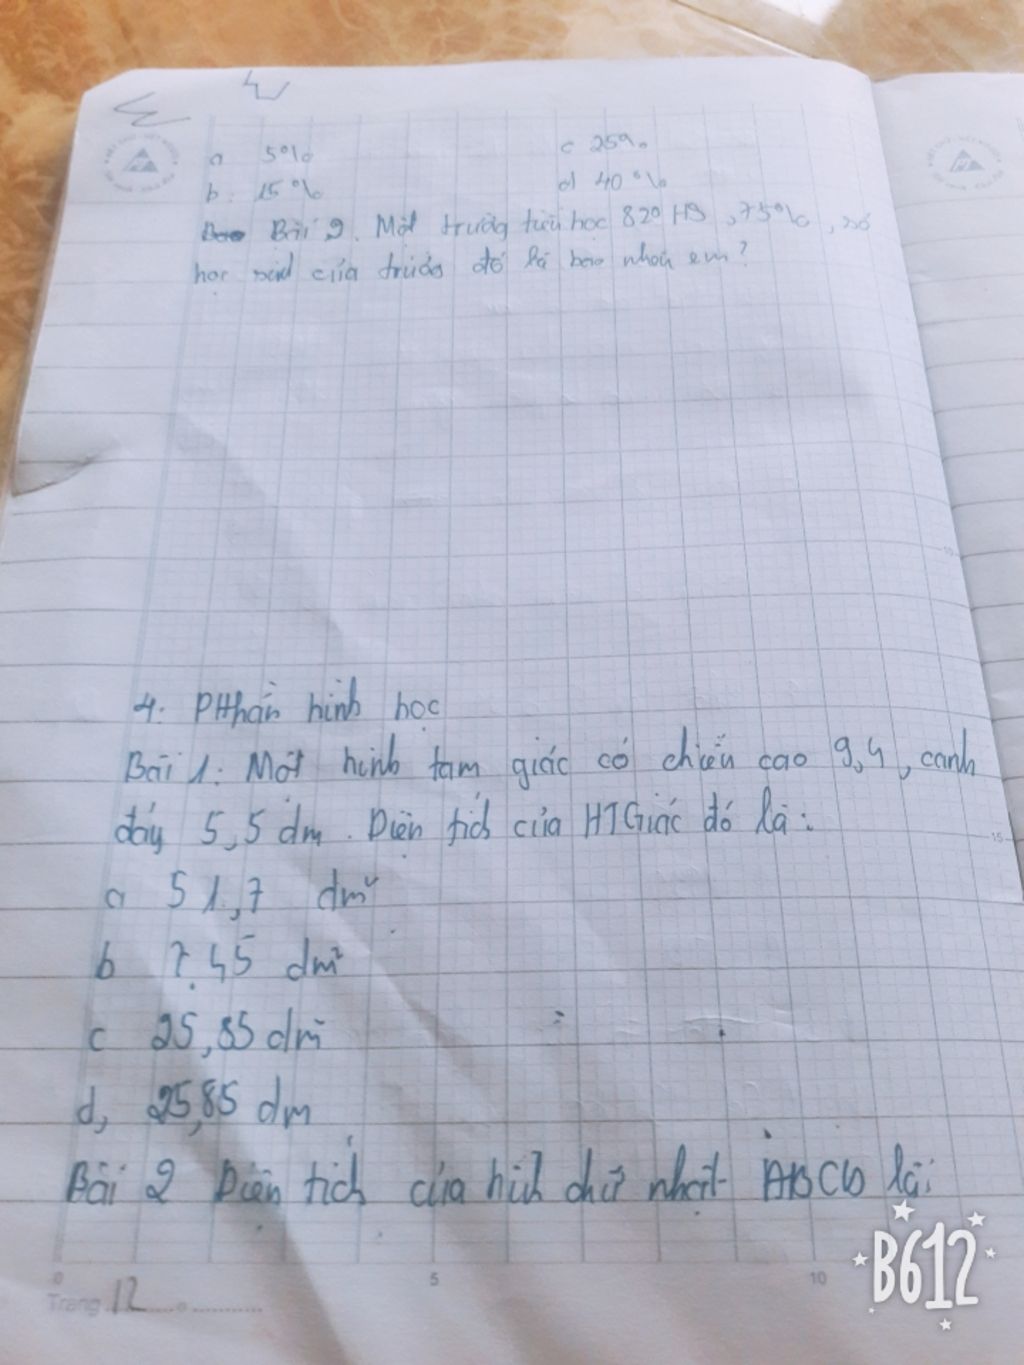 a 5% c 25%
b. 15% d) 40%
Bài 2. Một trường tiểu học 820 HS, 75%, số
học sinh của trường đó là bao nhiêu em?
4. PHhần hình học
Bài 1: Một hình tam giác có chiều cao 9,4, cạnh
đáy 5,5 dm. Diện tích của HTGiác đó là:
a 51,7 dm²
b 7,45 dm²
c 25,85 dm²
d, 25,85 dm
Bài 2 Diện tích của hình chữ nhật ABCD là:
0 5 10
Trang 12
B612